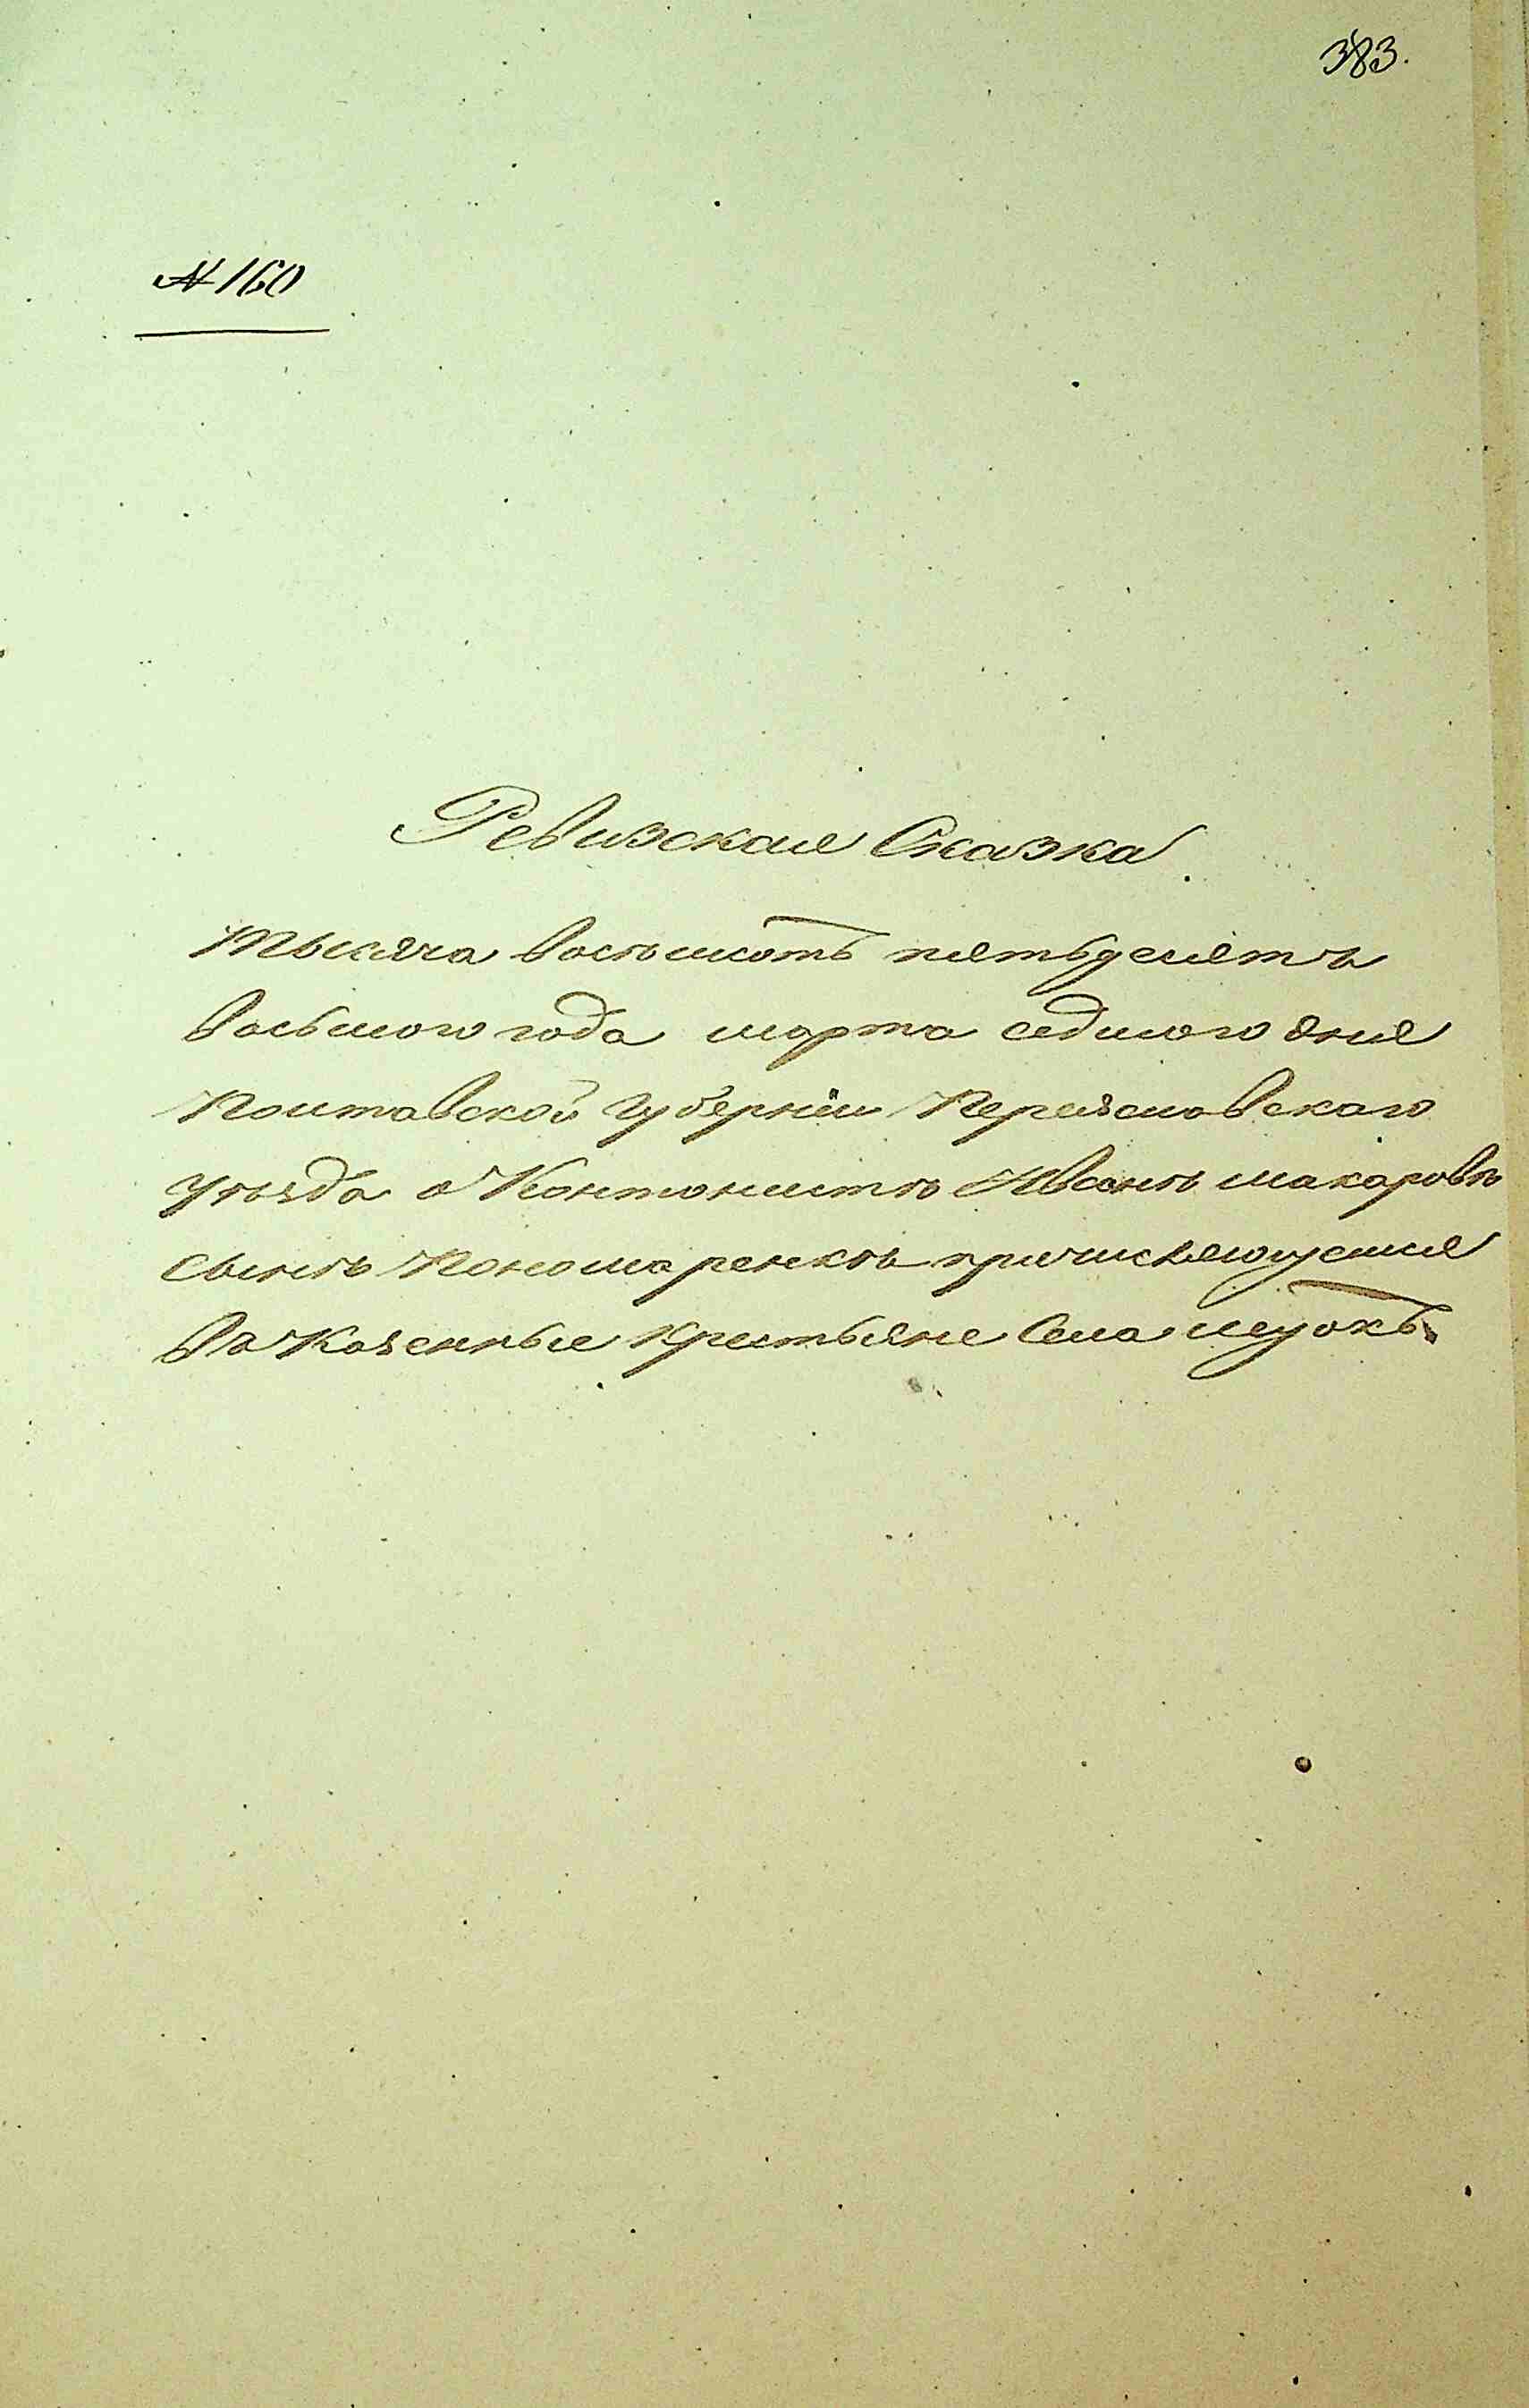 383.
№ 160
Ревизская Сказка.
Тысяча восемсотъ пятьдесятъ
восьмого года марта седмого дня
Полтавской Губерніи Переясловскаго
уѣзда о Кантонистѣ Иванѣ макаровѣ
сынѣ Пономаренкѣ причисляющемся
въ Казенные Крестьяне Села